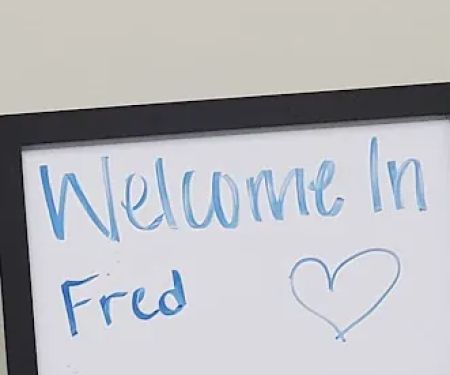 Welcome In
Fred